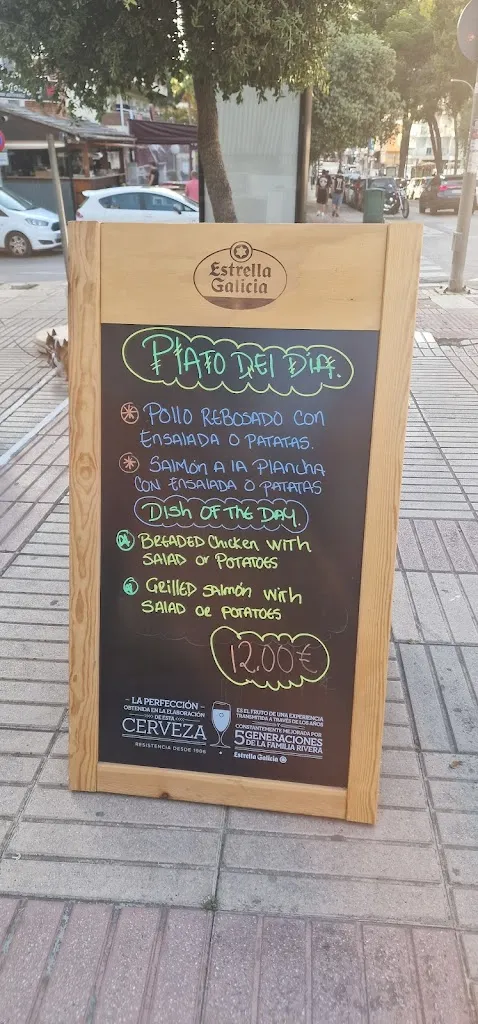 Estrella
Galicia
PLATO DEL DÍA.
POLLO REBOSADO CON
ENSALADA O PATATAS.
SALMÓN A LA PLANCHA
CON ENSALADA O PATATAS
DISH OF THE DAY.
BREADED CHICKEN WITH
SALAD OR POTATOES
GRILLED SALMON WITH
SALAD OR POTATOES
12.00€
LA PERFECCIÓN
OBTENIDA EN LA ELABORACIÓN
DE ESTA
CERVEZA
RESISTENCIA DESDE 1906
ES EL FRUTO DE UNA EXPERIENCIA
TRANSMITIDA A TRAVÉS DE LOS AÑOS
Y
CONSTANTEMENTE MEJORADA POR
5 GENERACIONES
DE LA FAMILIA RIVERA
Estrella Galicia